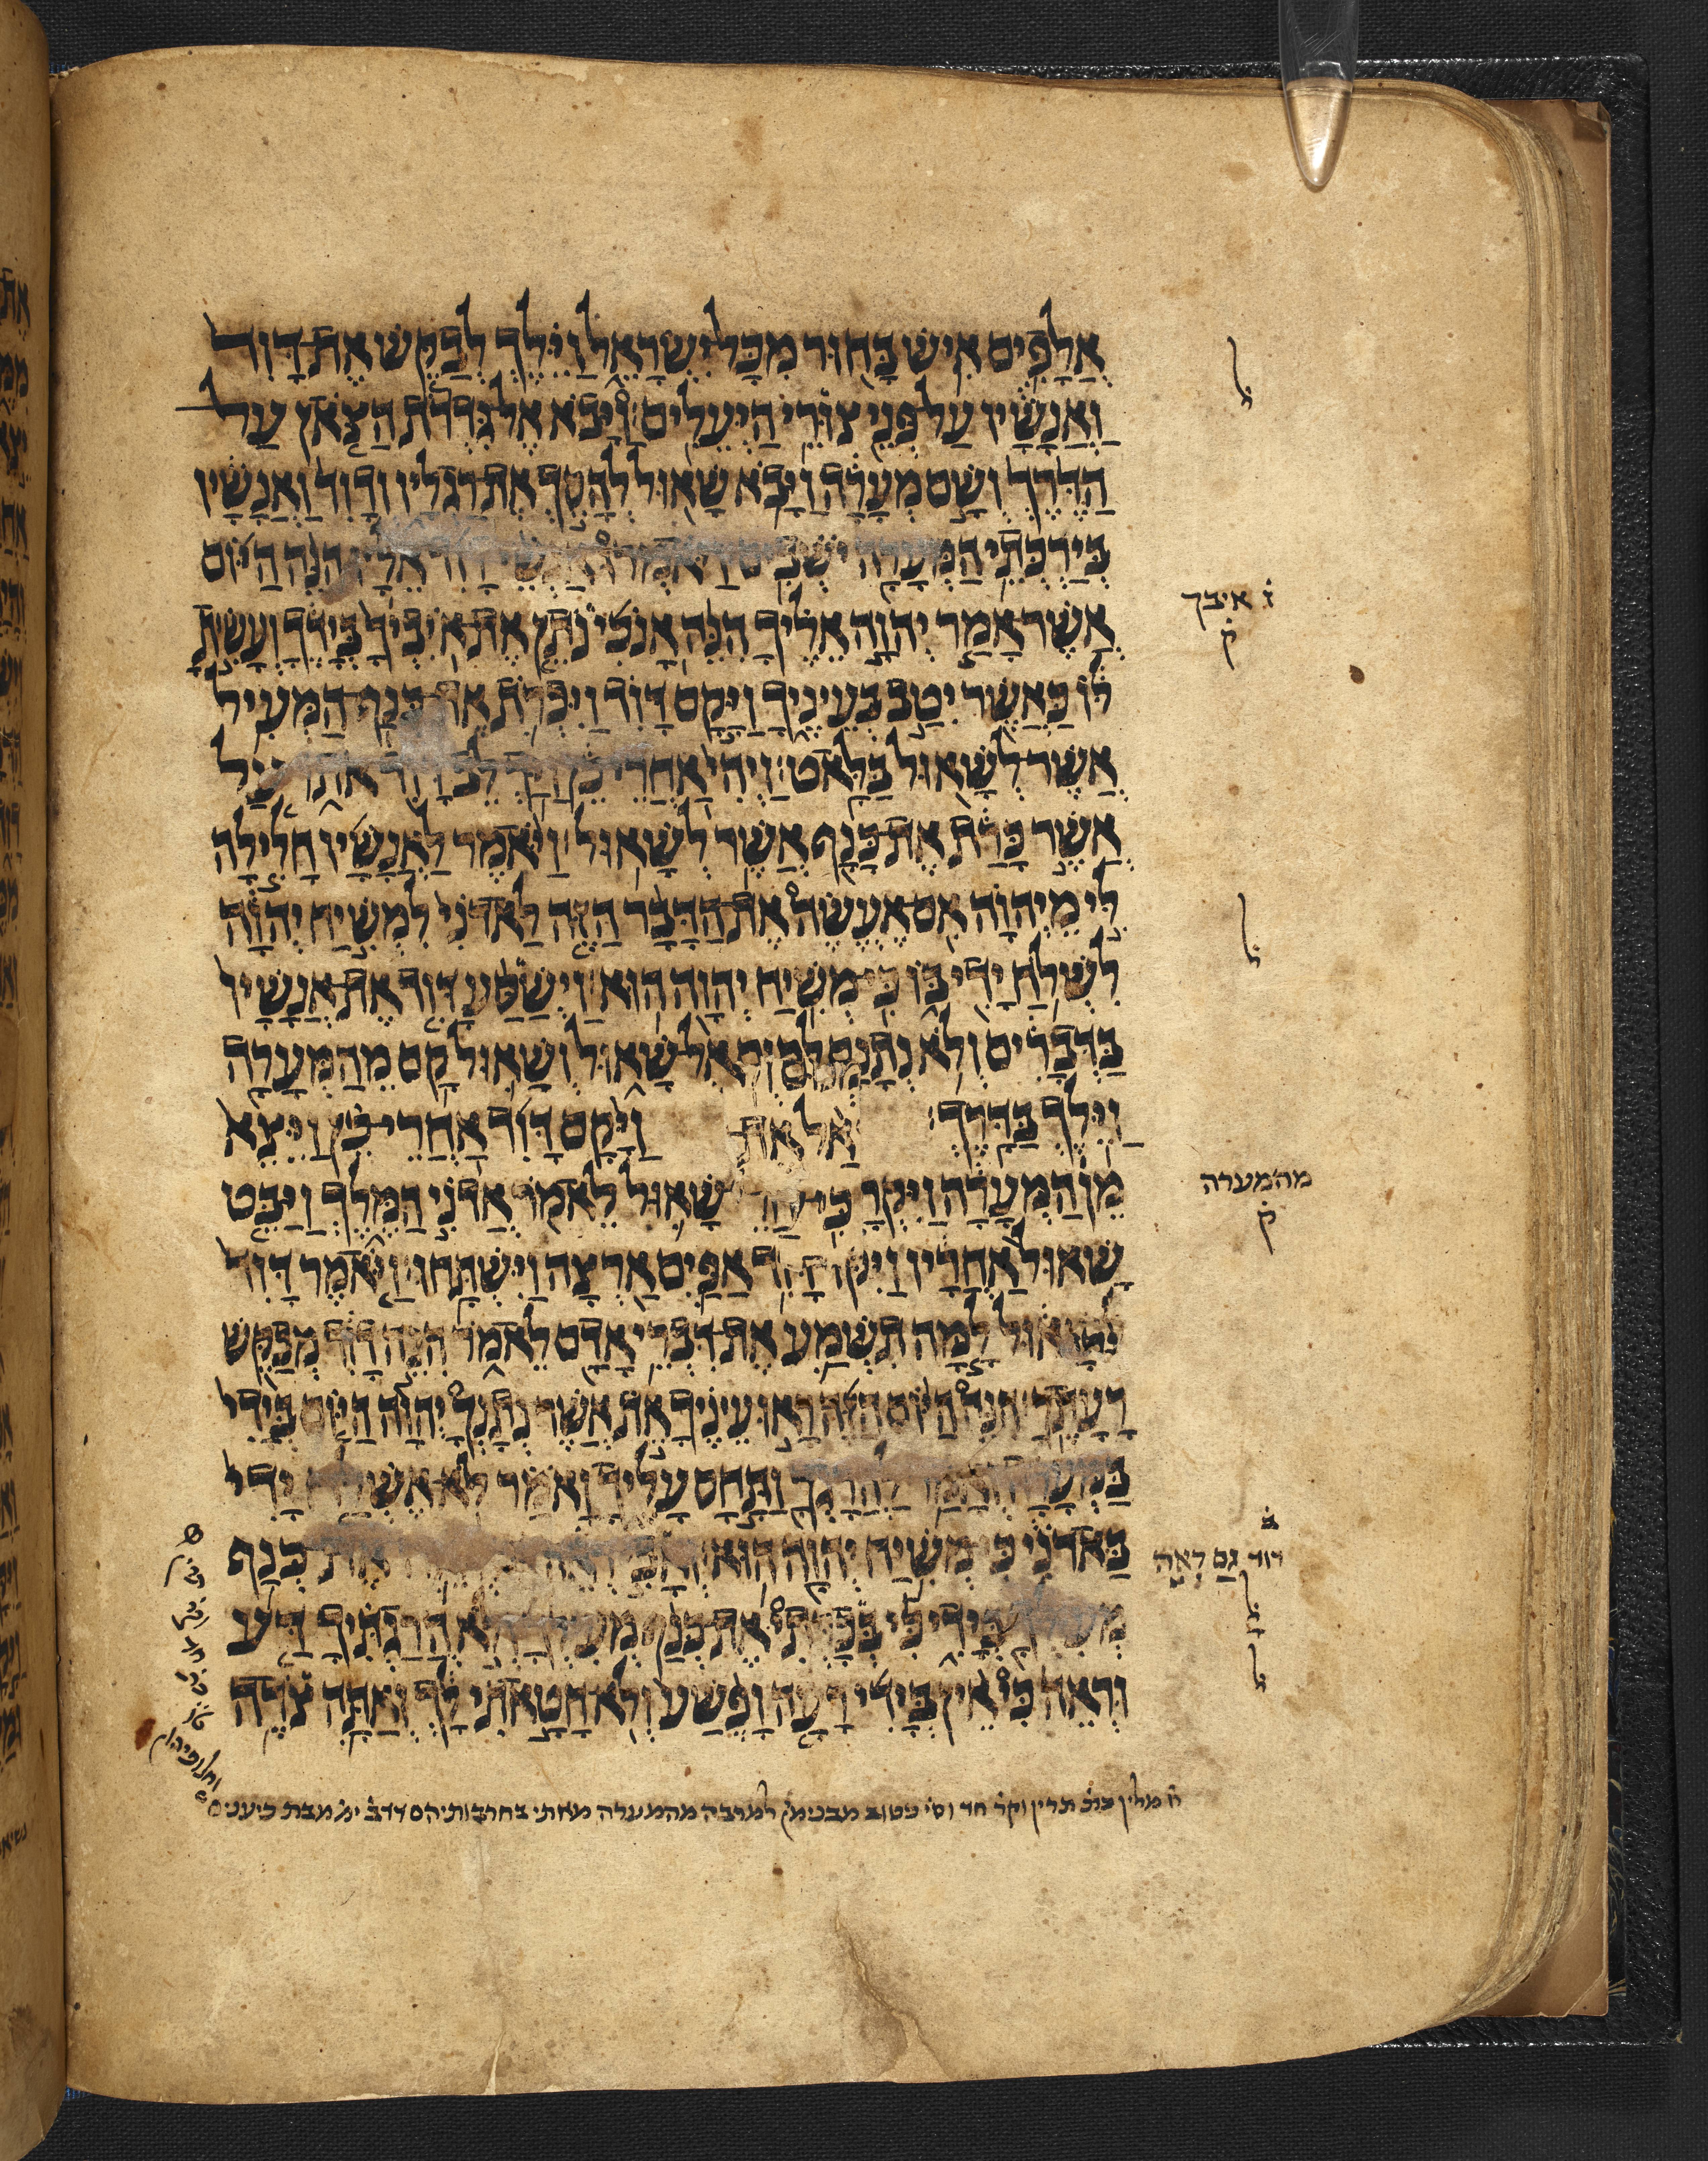 אֲלָפִים אִישׁ בָּחוּר מִכָּל יִשְׂרָאֵל וַיֵּלֶךְ לְבַקֵּשׁ אֶת דָּוִד
וַאֲנָשָׁיו עַל פְּנֵי צוּרֵי הַיְּעֵלִים׃ וַיָּבֹא אֶל גִּדְרֹת הַצֹּאן עַל
הַדֶּרֶךְ וְשָׁם מְעָרָה וַיָּבֹא שָׁאוּל לְהָסֵךְ אֶת רַגְלָיו וְדָוִד וַאֲנָשָׁיו
בְּיַרְכְּתֵי הַמְּעָרָה יֹשְׁבִים׃ וַיֹּאמְרוּ אַנְשֵׁי דָוִד אֵלָיו הִנֵּה הַיּוֹם
אֲשֶׁר אָמַר יְהוָה אֵלֶיךָ הִנֵּה אָנֹכִי נֹתֵן אֶת אֹיִבְיךָ בְּיָדֶךָ וְעָשִׂיתָ
לּוֹ כַּאֲשֶׁר יִטַב בְּעֵינֶיךָ וַיָּקָם דָּוִד וַיִּכְרֹת אֶת כְּנַף הַמְּעִיל
אֲשֶׁר לְשָׁאוּל בַּלָּאט׃ וַיְהִי אַחֲרֵי כֵן וַיַּךְ לֵב דָּוִד אֹתוֹ עַל
אֲשֶׁר כָּרַת אֶת כָּנָף אֲשֶׁר לְשָׁאוּל׃ וַיֹּאמֶר לַאֲנָשָׁיו חָלִילָה
לִּי מֵיְהוָה אִם אֶעֱשֶׂה אֶת הַדָּבָר הַזֶּה לַאדֹנִי לִמְשִׁיחַ יְהוָה
לִשְׁלֹחַ יָדִי בּוֹ כִּי מְשִׁיחַ יְהוָה הוּא׃ וַיְשַׁסַּע דָּוִד אֶת אֲנָשָׁיו
בַּדְּבָרִים וְלֹא נְתָנָם לָקוּם אֶל שָׁאוּל וְשָׁאוּל קָם מֵהַמְּעָרָה
וַיֵּלֶךְ בַּדָּרֶךְ׃ וַיָּקָם דָּוִד אַחֲרֵי כֵן וַיֵּצֵא
מִן הַמְּעָרָה וַיִּקְרָא שָׁאוּל לֵאמֹר אֲדֹנִי הַמֶּלֶךְ וַיַּבֵּט
שָׁאוּל אַחֲרָיו וַיִּקֹּד דָּוִד אַפַּיִם אַרְצָה וַיִּשְׁתָּחוּ׃ וַיֹּאמֶר דָּוִד
לְשָׁאוּל לָמָּה תִשְׁמַע אֶת דִּבְרֵי אָדָם לֵאמֹר הִנֵּה דָוִד מְבַקֵּשׁ
רָעָתֶךָ׃ הִנֵּה הַיּוֹם הַזֶּה רָאוּ עֵינֶיךָ אֵת אֲשֶׁר נְתָנְךָ יְהוָה הַיּוֹם בְּיָדִי
בַּמְּעָרָה וְאָמַר לַהֲרָגֲךָ וַתָּחָס עָלֶיךָ וָאֹמַר לֹא אֶשְׁלַח יָדִי
בַּאדֹנִי כִּי מְשִׁיחַ יְהוָה הוּא׃ וְאָבִי רְאֵה אֶת כְּנַף
מְעִילְךָ בְּיָדִי כִּי בְּכָרְתִי אֶת כְּנַף מְעִילְךָ וְלֹא הֲרַגְתִּיךָ דַּע
וּרְאֵה כִּי אֵין בְּיָדִי רָעָה וָפֶשַׁע וְלֹא חָטָאתִי לָךְ וְאַתָּה צֹדֶה
ל
איבך
ק
ל
מה׳מערה
ק
ב
דוד גַם רְאֵה
ל
ל